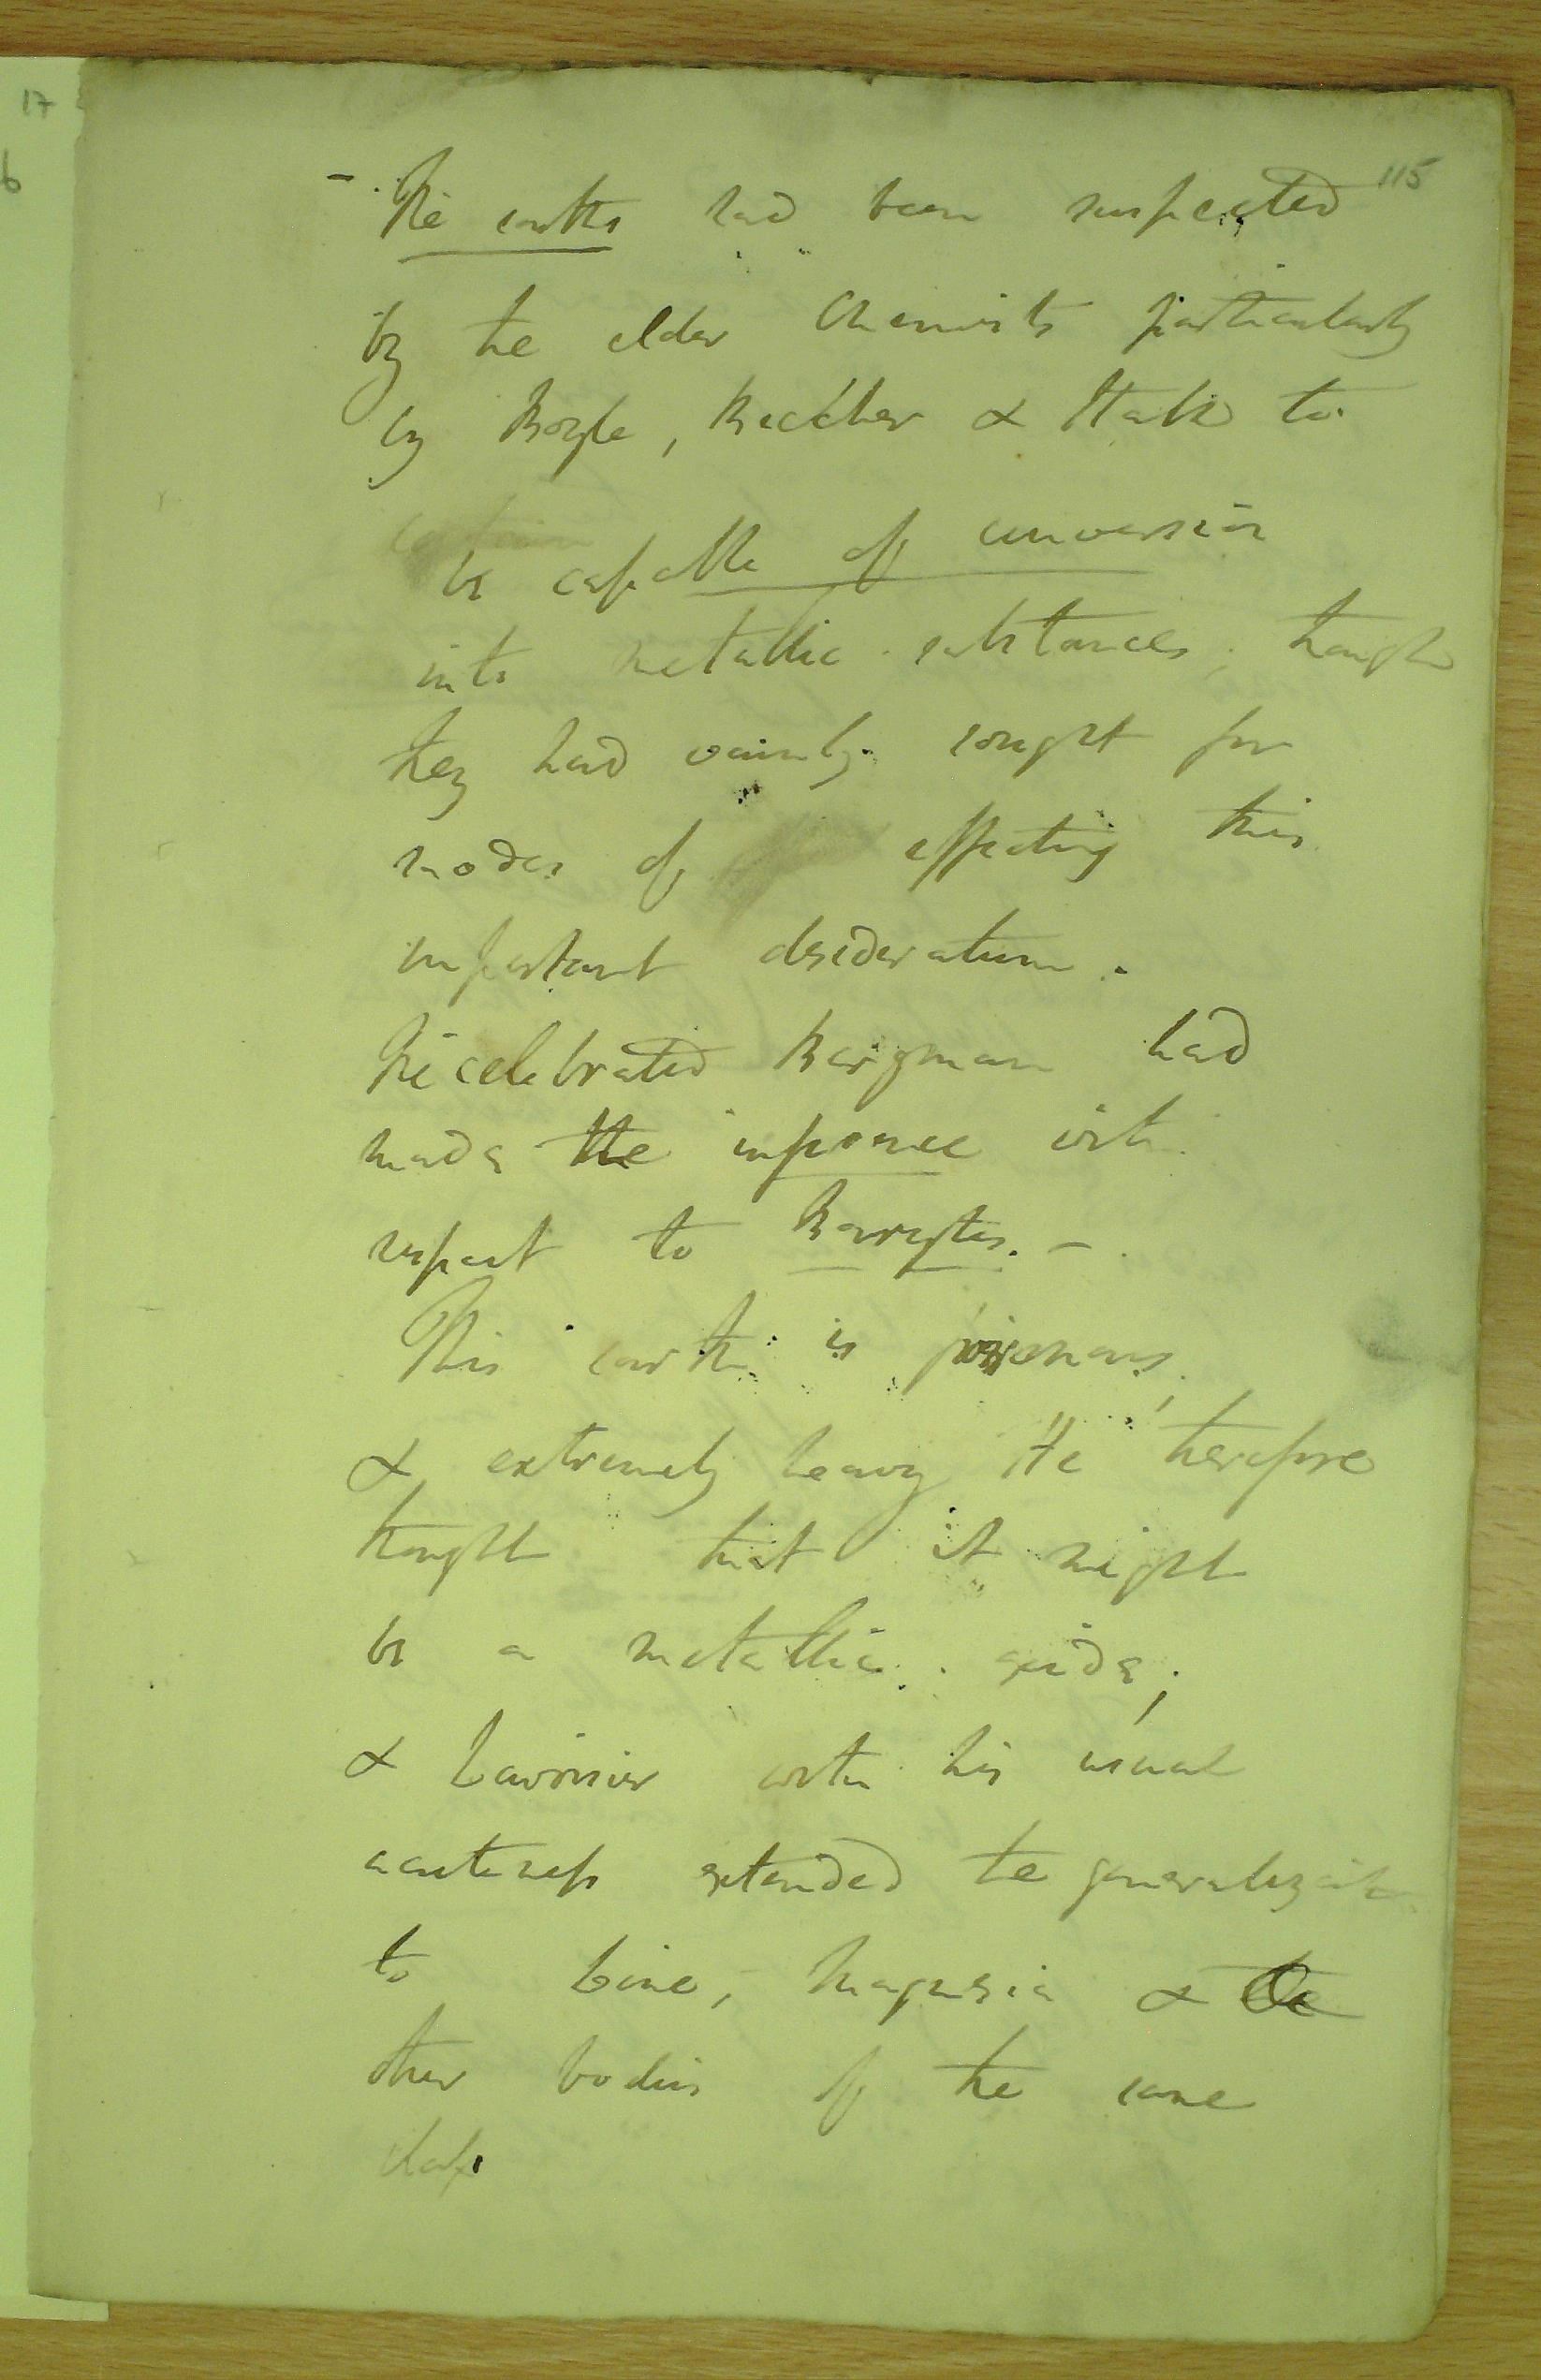 17
6
115
- The earths had been suspected
by the elder Chemists particularly
by Boyle, Beccher & Stahl to
be capable of conversion
into metallic substances; though
they had vainly sought for
modes of effecting this
important desideratum.
The celebrated Bergman had
made the inference with
respect to Barytes. -
This earth is poisonous,
& extremely heavy He therefore
thought that it might
be a metallic oxide;
& Lavoisier with his usual
acuteness extended the generalization
to Lime, Magnesia & the
other bodies of the same
class